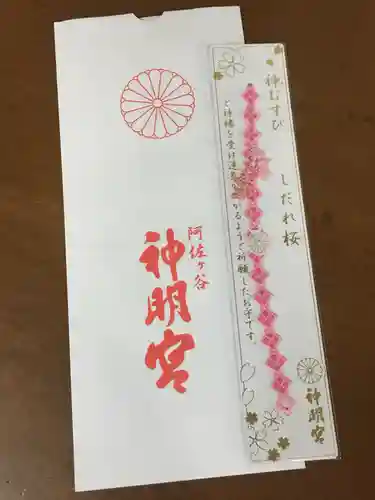 阿佐ヶ谷
神明宮
神むすび
しだれ桜
ご神縁を受け運
るようご祈願したお守です。
神明宮